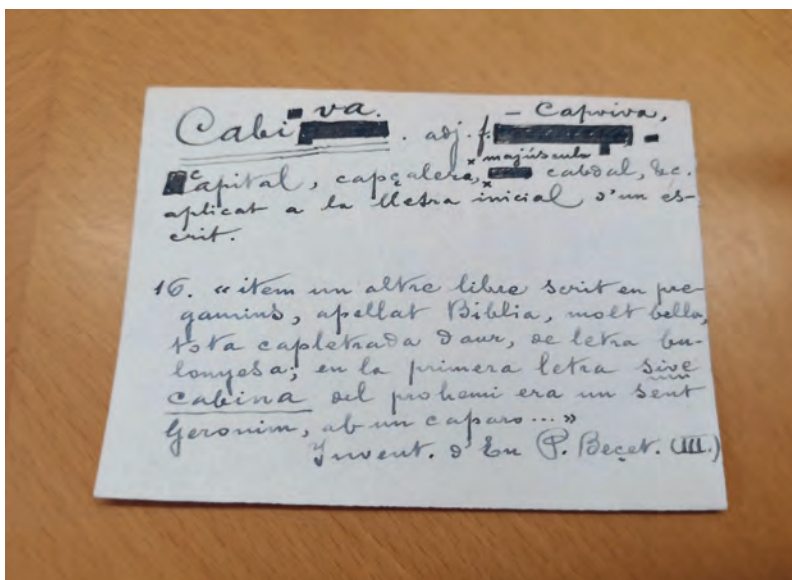 Cabiva. adj. f. – Capviva,
capital, capçalera, majúscula cabdal, &c.
aplicat a la lletra inicial d'un es-
crit.
16. «item un altre libre scrit en per-
gamins, apellat Biblia, molt bella,
tota capletrada daur, de letra bu-
lonyesa; en la primera letra sive
cabina del prohemi era un Sent
Geronim, ab un caparo...»
Invent. d'En P. Beçet. (III.)